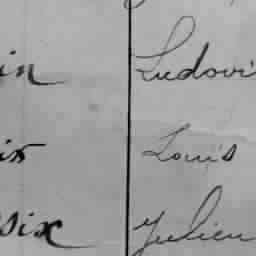 in Ludovi
ix Louis
six Julien